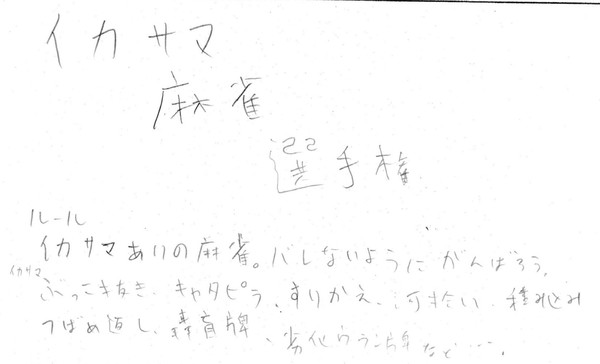 イカサマ
麻雀
選手権
ルール
イカサマありの麻雀。バレないようにがんばろう。
イカサマ
ぶっこ抜き、キャタピラ、すりかえ、河拾い、積み込み
つばめ返し、盲牌、劣化ウラン牌など…。